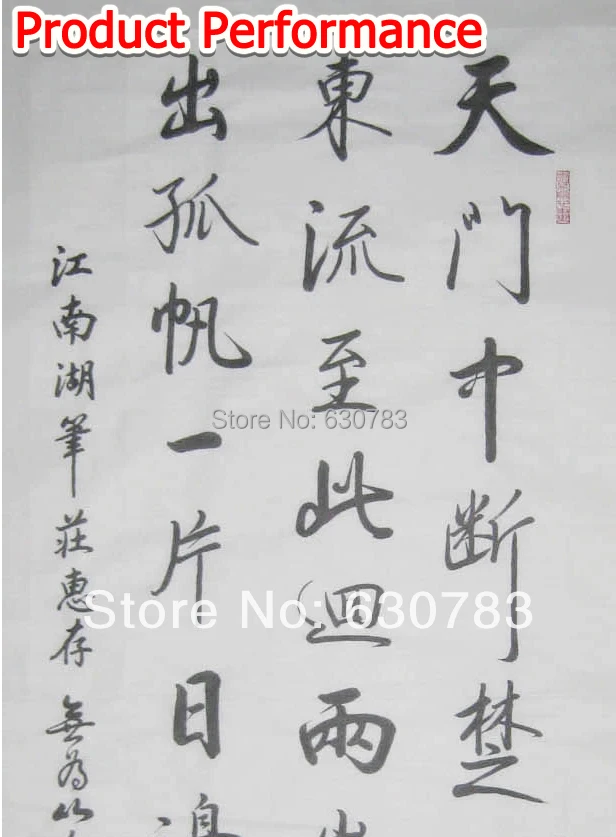 Product Performance
天門中断楚
東流至此迴兩
出孤帆一片日
江南湖筆莊惠存 無為
Store No: 630783
Store No: 630783